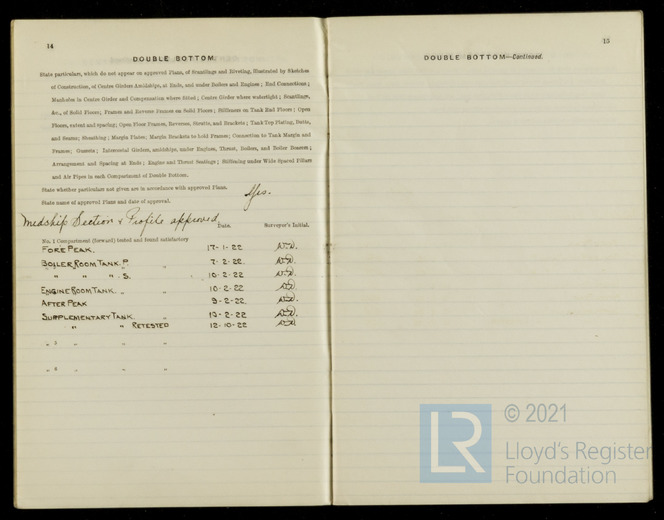 14
DOUBLE BOTTOM
State particulars, which do not appear on approved Plans, of Scantlings and Riveting, illustrated by Sketches
of Construction, of Centre Girders Amidships, at Ends, and under Boilers and Engines; End Connections;
Manholes in Centre Girder and Compensation where fitted; Centre Girder where watertight; Scantlings,
&c., of Solid Floors; Frames and Reverse Frames on Solid Floors; Stiffeners on Tank End Floors; Open
Floors, extent and spacing; Open Floor Frames, Reverses, Struts, and Brackets; Tank Top Plating, Butts,
and Seams; Sheathing; Margin Plates; Margin Brackets to hold Frames; Connection to Tank Margin and
Frames; Gussets; Intercostal Girders, amidships, under Engines, Thrust, Boilers, and Boiler Bearers;
Arrangement and Spacing at Ends; Engine and Thrust Seatings; Stiffening under Wide Spaced Pillars
and Air Pipes in each Compartment of Double Bottom.
State whether particulars not given are in accordance with approved Plans. Yes.
State name of approved Plans and date of approval.
Midship Section & Profile approved
Date. Surveyor's Initial.
No. 1 Compartment (forward) tested and found satisfactory
FORE PEAK. 17-1-22
BOILER ROOM TANK. P. 7-2-22
" " " S. 10-2-22
ENGINE ROOM TANK. " " 10-2-22
AFTER PEAK 9-2-22
SUPPLEMENTARY TANK. " 10-2-22
" " RETESTED 12-10-22
" 5 " " "
" 6 " " "
15
DOUBLE BOTTOM—Continued.
LR
© 2021
Lloyd's Register
Foundation